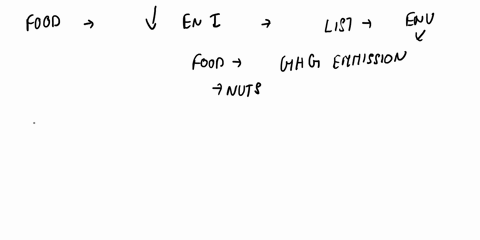 FOOD → ↓ EN I → LIST → ENV
↓
FOOD → GHG EMMISSION
→ NUTS